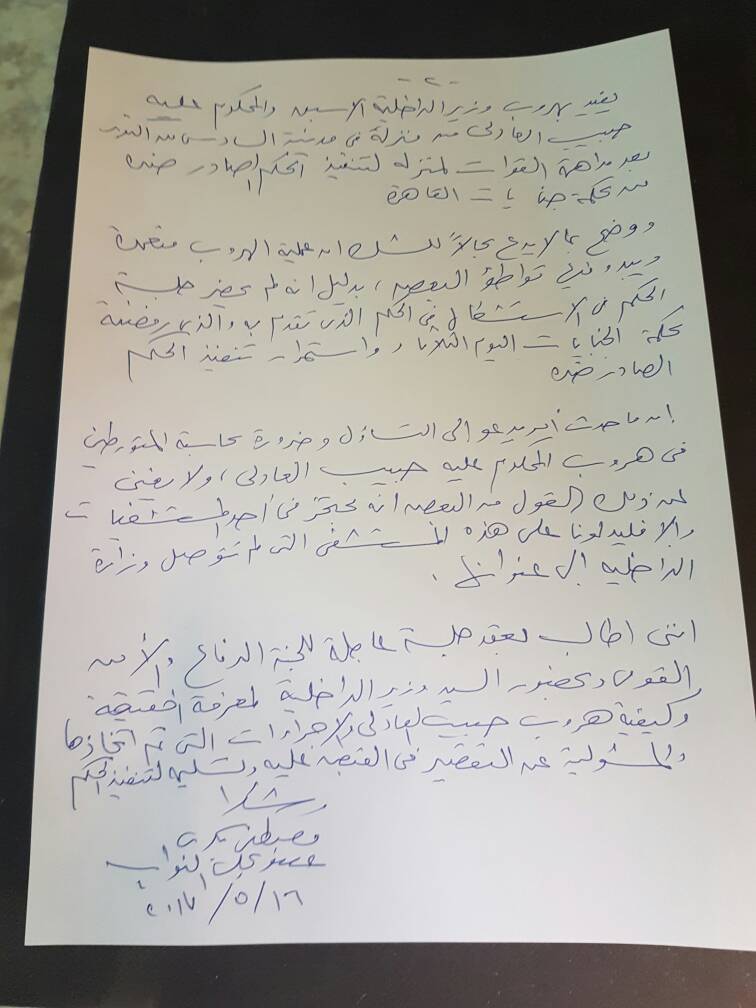 - ٢ -
يفيد بهروب وزير الداخلية الاسبق والمحكوم عليه
حبيب العادلى من منزلة فى مدينة السادس من اكتوبر
بعد مداهمة القوات لمنزله لتنفيذ الحكم الصادر ضده
من محكمة جنايات القاهرة
ووضح بما لا يدع مجالاً للشك ان عملية الهروب متعمدة
ويبدو فيها تواطؤ البعض، بدليل انه لم يحضر جلسة
الحكم فى الاستشكال فى الحكم الذى تقدم به والذى رفضته
محكمة الجنايات اليوم الثلاثاء واستمرار تنفيذ الحكم
الصادر ضده
إن ما حدث أمر يدعو الى التساؤل وضرورة محاسبة المتورطين
فى هروب المحكوم عليه حبيب العادلى، ولا يغنى
عن ذلك القول من البعض انه محتجز فى أحد المستشفيات
والا فليدلونا على هذه المستشفى التى لم تتوصل وزارة
الداخلية الى عنوانها.
اننى اطالب بعقد جلسة عاجلة للجنة الدفاع والأمن
القومى وبحضور السيد وزير الداخلية لمعرفة الحقيقة
وكيفية هروب حبيب العادلى والاجراءات التى تم اتخاذها
والمسئولية عن التقصير فى القبض عليه وتسليمه لتنفيذ الحكم
وشكرا
مصطفى بكرى
عضو مجلس النواب
١٦/٥/٢٠١٧